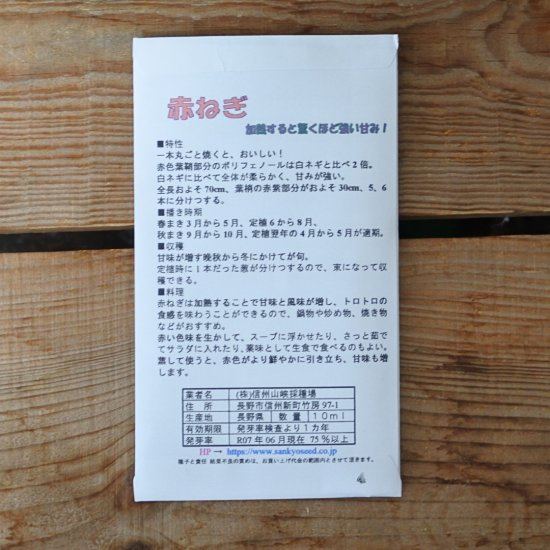 赤ねぎ
加熱すると驚くほど強い甘み！
■特性
一本丸ごと焼くと、おいしい！
赤色葉鞘部分のポリフェノールは白ネギと比べ2倍。
白ネギに比べて全体が柔らかく、甘みが強い。
全長およそ70cm、葉梢の赤紫部分がおよそ30cm、5、6
本に分けつする。
■播き時期
春まき3月から5月、定植6から8月、
秋まき9月から10月、定植翌年の4月から5月が適期。
■収穫
甘味が増す晩秋から冬にかけてが旬。
定植時に1本だった葱が分けつするので、束になって収
穫できる。
■料理
赤ねぎは加熱することで甘味と風味が増し、トロトロの
食感を味わうことができるので、鍋物や炒め物、焼き物
などがおすすめ。
赤い色味を生かして、スープに浮かせたり、さっと茹で
てサラダに入れたり､薬味として生食で食べるのもよい。
蒸して使うと、赤色がより鮮やかに引き立ち、甘味も増
します。
業者名 (株)信州山峡採種場
住 所 長野市信州新町竹房97-1
生産地 長野県 数 量 10ml
有効期限 発芽率検査より1カ年
発芽率 R07年06月現在 75%以上
HP→ https://www.sankyoseed.co.jp
種子と責任 結果不良の責めは、お買い上げ代金の範囲内とさせて頂きます。